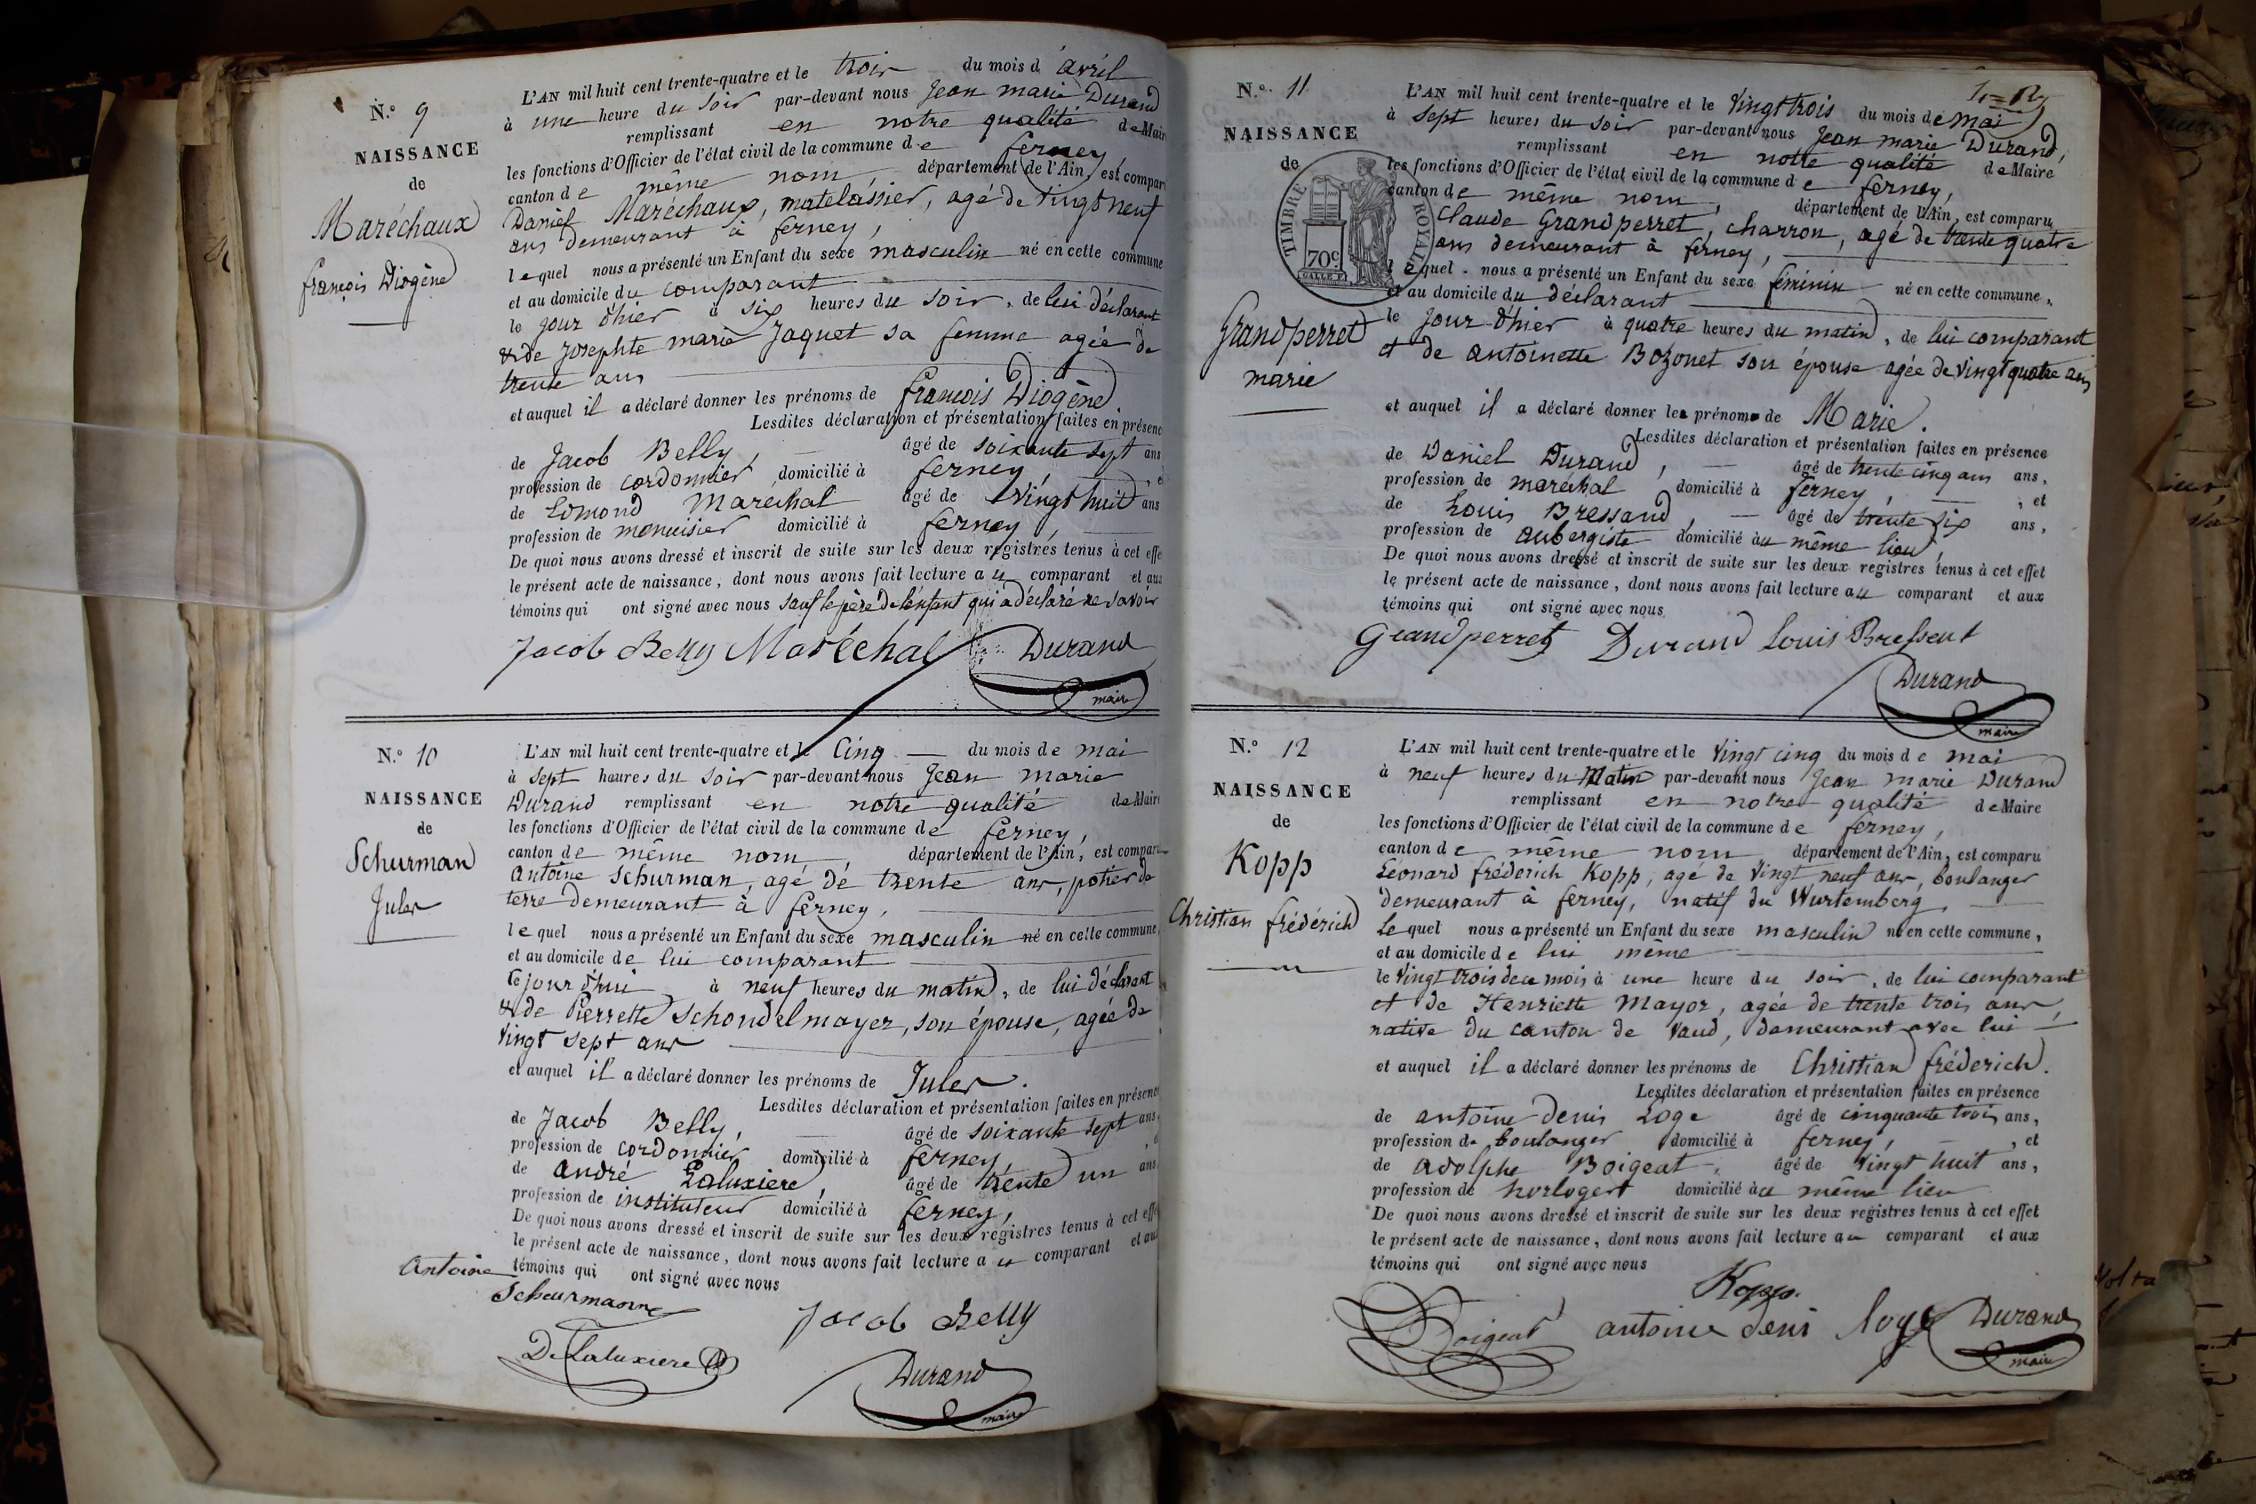 N.o 9
NAISSANCE
de
Maréchaux
françois Diogène
L'AN mil huit cent trente-quatre et le trois du mois d'avril
à une heure du soir par-devant nous Jean marie Durand
remplissant en notre qualité de Mair
les fonctions d'Officier de l'état civil de la commune de ferney,
canton de même nom, département de l'Ain, est compar
Daniel Maréchaux, matelassier, agé de vingt neuf
ans demeurant à ferney,
lequel nous a présenté un Enfant du sexe masculin né en cette commune
et au domicile du comparant
le jour d'hier à six heures du soir, de lui déclarant
& de Josephte marie Jaquet sa femme agée de
trente ans
et auquel il a déclaré donner les prénoms de françois Diogène
Lesdites déclaration et présentation faites en présenc
de Jacob Belly, âgé de soixante sept ans
profession de cordonnier domicilié à ferney, e
de Edmond Maréchal âgé de vingt huit ans
profession de menuisier domicilié à ferney,
De quoi nous avons dressé et inscrit de suite sur les deux registres tenus à cet effe
le présent acte de naissance, dont nous avons fait lecture au comparant et aux
témoins qui ont signé avec nous sauf le père de l'enfant qui a déclaré ne savoir
Jacob Belly Maréchal Durand
maire
N.o 10
NAISSANCE
de
Schurman
Jules
L'AN mil huit cent trente-quatre et le Cinq du mois de mai
à sept heures du soir par-devant nous Jean marie
Durand remplissant en notre qualité de Maire
les fonctions d'Officier de l'état civil de la commune de ferney,
canton de même nom, département de l'Ain, est comparu
Antoine Schurman, agé de trente ans, potier de
terre demeurant à ferney,
lequel nous a présenté un Enfant du sexe masculin né en cette commune,
et au domicile de lui comparant
le jour d'hui à neuf heures du matin, de lui déclarant
& de Pierrette Schondelmayer, son épouse, agée de
vingt sept ans
et auquel il a déclaré donner les prénoms de Jules.
Lesdites déclaration et présentation faites en présence
de Jacob Belly, âgé de soixante sept ans,
profession de cordonnier domicilié à ferney,
de andré Laluxiere, âgé de trente un ans
profession de instituteur domicilié à ferney,
De quoi nous avons dressé et inscrit de suite sur les deux registres tenus à cet effe
le présent acte de naissance, dont nous avons fait lecture au comparant et aux
témoins qui ont signé avec nous
Antoine
Scheurmanne
Jacob Belly
De Laluxiere
Durand
maire
N.o 11
NAISSANCE
de
TIMBRE ROYAL
70c
Grandperret
marie
L'AN mil huit cent trente-quatre et le vingt trois du mois de mai
à sept heures du soir par-devant nous Jean marie Durand,
remplissant en notre qualité de Maire
les fonctions d'Officier de l'état civil de la commune de ferney,
canton de même nom, département de l'Ain, est comparu
Claude Grandperret, charron, agé de trente quatre
ans demeurant à ferney,
lequel nous a présenté un Enfant du sexe féminin né en cette commune,
et au domicile du déclarant
le jour d'hier à quatre heures du matin, de lui comparant
et de antoinette Bozonet son épouse agée de vingt quatre ans
et auquel il a déclaré donner les prénoms de Marie.
Lesdites déclaration et présentation faites en présence
de Daniel Durand, âgé de trente cinq ans ans,
profession de maréchal domicilié à ferney, et
de Louis Bressand, âgé de trente six ans,
profession de aubergiste domicilié au même lieu,
De quoi nous avons dressé et inscrit de suite sur les deux registres tenus à cet effet
le présent acte de naissance, dont nous avons fait lecture au comparant et aux
témoins qui ont signé avec nous
Grandperret Durand Louis Bressent
Durand
maire
N.o 12
NAISSANCE
de
Kopp
Christian frédérich
L'AN mil huit cent trente-quatre et le vingt cinq du mois de mai
à neuf heures du Matin par-devant nous Jean marie Durand
remplissant en notre qualité de Maire
les fonctions d'Officier de l'état civil de la commune de ferney,
canton de même nom département de l'Ain, est comparu
Léonard fréderich Kopp, agé de vingt neuf ans, boulanger
demeurant à ferney, natif du Wurtemberg,
lequel nous a présenté un Enfant du sexe masculin né en cette commune,
et au domicile de lui même
le vingt trois de ce mois à une heure du soir, de lui comparant
et de Henriette Mayor, agée de trente trois ans,
native du canton de Vaud, demeurant avec lui
et auquel il a déclaré donner les prénoms de Christian fréderich.
Lesdites déclaration et présentation faites en présence
de antoine denis Loge âgé de cinquante trois ans,
profession de boulanger domicilié à ferney, et
de adolphe Boigeat, âgé de vingt huit ans,
profession de horloger domicilié au même lieu
De quoi nous avons dressé et inscrit de suite sur les deux registres tenus à cet effet
le présent acte de naissance, dont nous avons fait lecture au comparant et aux
témoins qui ont signé avec nous
Kopp.
Boigeat antoine deni loge Durand
maire